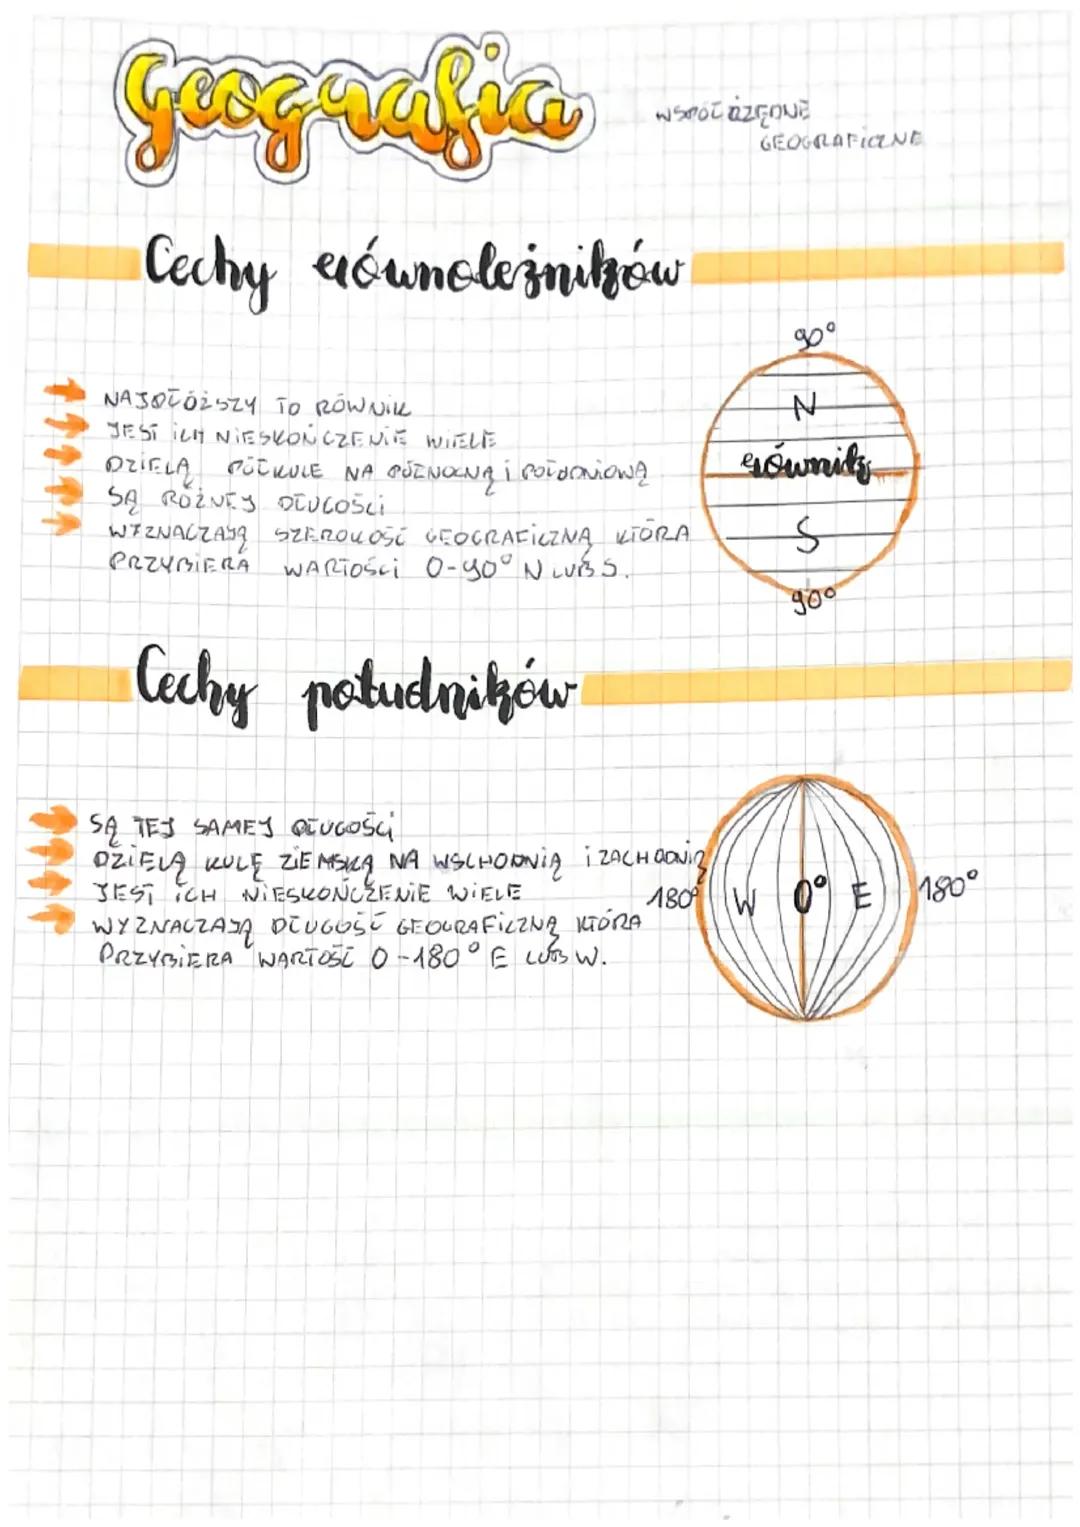 Geografia
WSPÓŁŻĘDNE
GEOGRAFICZNE
Cechy równoleżników
NAJDŁÓŻSZY TO RÓWNIK
JEST ICH NIESKOŃCZENIE WIELE
DZIELĄ PÓŁKULE NA PÓŻNOCNĄ I POŁUDNIOWĄ
SĄ RÓŻNEJ DŁUGOŚCI
WYZNACZAJĄ SZEROKOŚĆ GEOGRAFICZNĄ KTÓRA
PRZYBIERA WARTOŚCI 0-90° N LUB S.
90°
N
równik
S
90°
Cechy południków
SĄ TEJ SAMEJ DŁUGOŚCI
DZIELĄ KULĘ ZIEMSKĄ NA WSCHODNIĄ I ZACHODNIĄ
JEST ICH NIESKOŃCZENIE WIELE
WYZNACZAJĄ DŁUGOŚĆ GEOGRAFICZNĄ KTÓRA
PRZYBIERA WARTOŚĆ 0-180° E LUB W.
180° W 0° E 180°